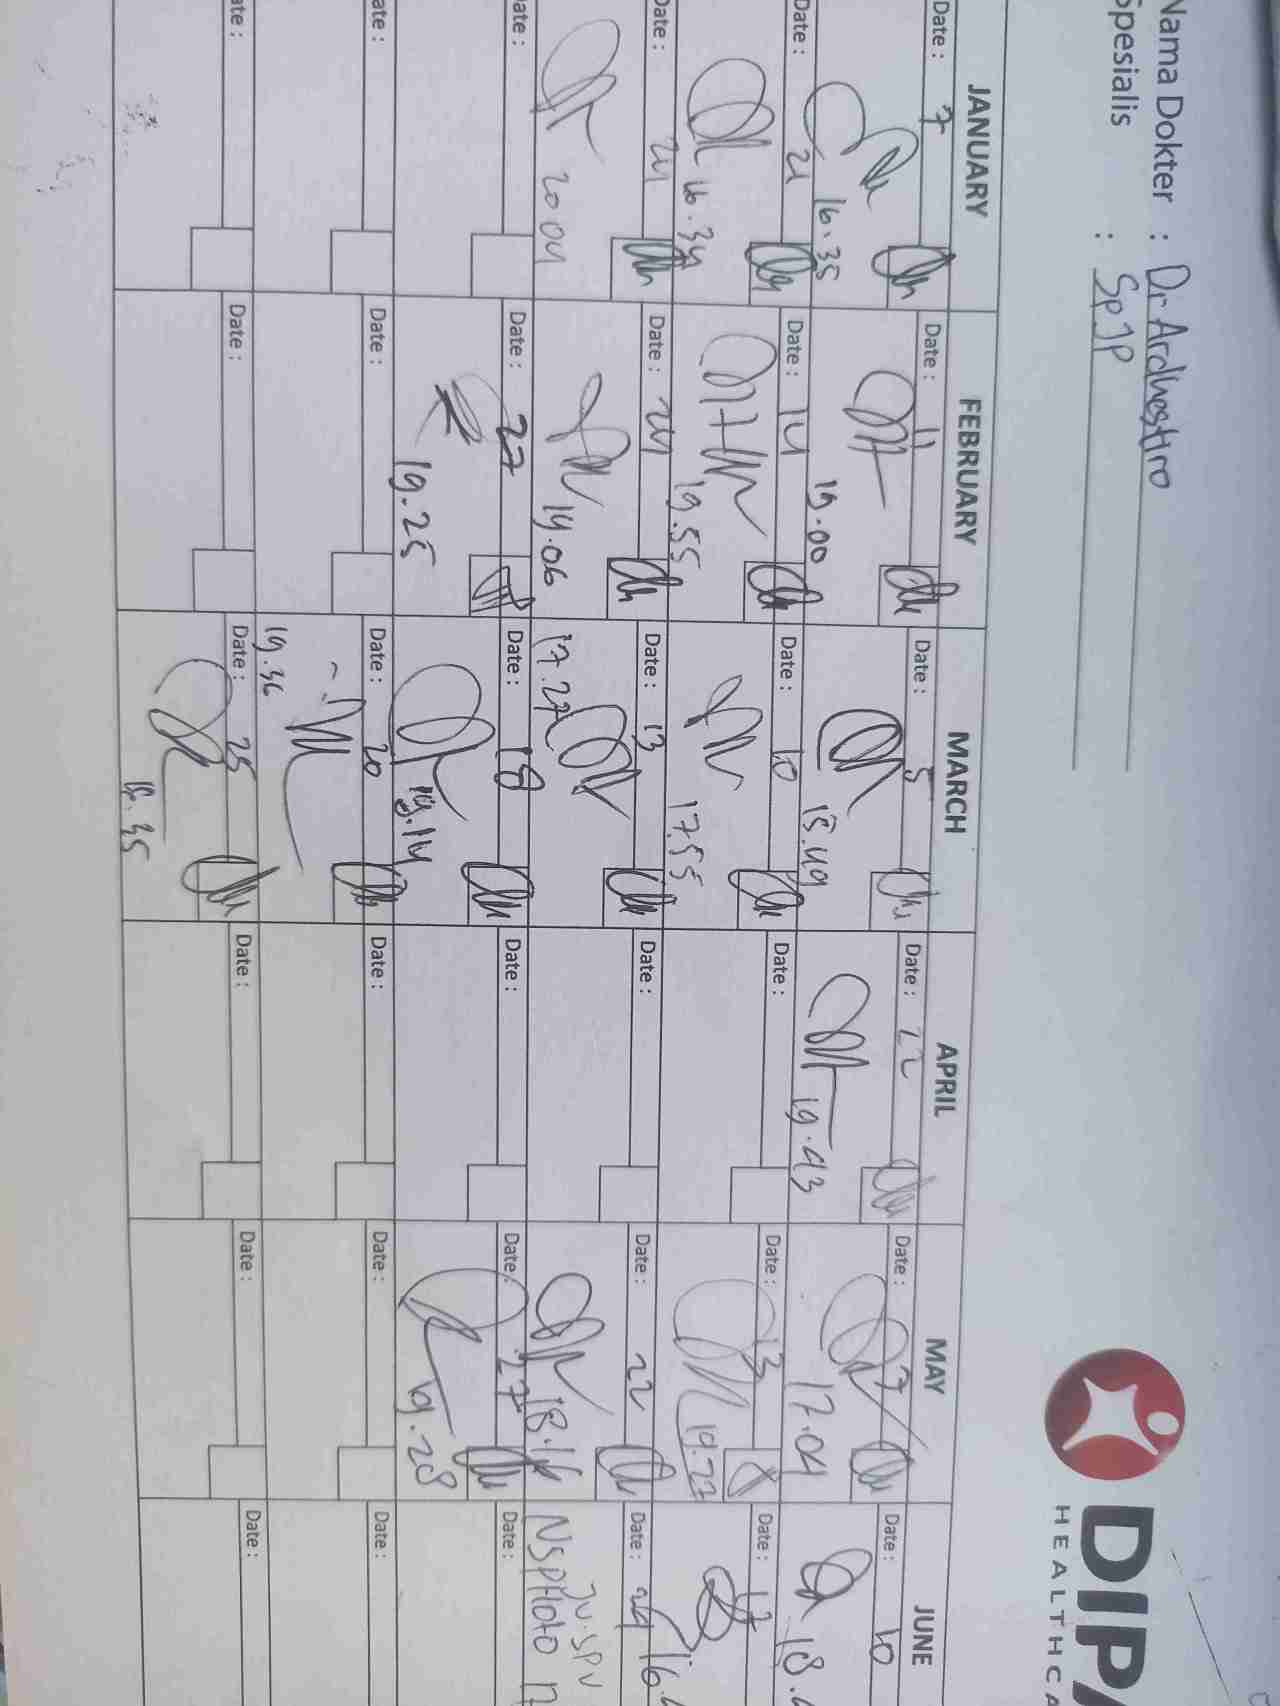 Nama Dokter : Dr Ardhestiro
Spesialis : SpJP
DIPA
HEALTHCA
JANUARY FEBRUARY MARCH APRIL MAY JUNE
Date : 7 Date : 11 Date : 5 Date : 22 Date : 7 Date : 10
16.35 19.00 15.49 19.43 17.04 18.
Date : 21 Date : 14 Date : 10 Date : Date : 13 Date : 17
16.34 19.55 17.55 19.27 16.
Date : 24 Date : 24 Date : 13 Date : Date : 22 Date : 24
20.04 19.06 17.27 18.16
Date : Date : 27 Date : 18 Date : Date : 27 Date :
19.25 19.14 19.28
Date : Date : Date : 20 Date : Date : Date :
19.36
Date : Date : Date : 25 Date : Date : Date :
16.35